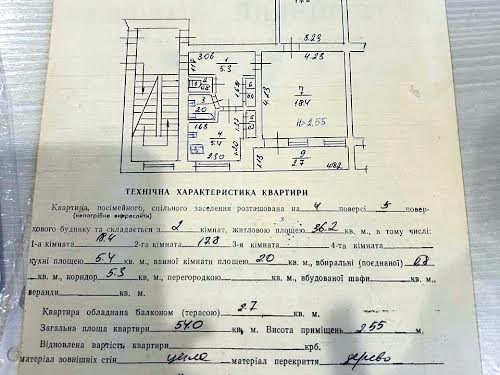 17.8
3.23
4.23
3.06
1
5.3
2
0.8
3
2.0
4.23
7
18.4
H-2.55
1.68
4
5.4
2.30
1.20
1.13
9
2.7
4.82
ТЕХНІЧНА ХАРАКТЕРИСТИКА КВАРТИРИ
Квартира, посімейного, спільного заселення розташована на 4 поверсі 5 повер-
(непотрібне викреслити)
хового будинку та складається з 2 кімнат, житловою площею 36.2 кв. м., в тому числі:
1-а кімната 18.4 2-га кімната 17.8 3-я кімната 4-та кімната
кухні площею 5.4 кв. м., ванної кімнати площею 2.0 кв. м., вбиральні (поєднаної) 0.8
кв. м., коридор 5.3 кв. м., перегородкою кв. м., вбудованої шафи кв. м.,
веранди кв. м.
Квартира обладнана балконом (терасою) 2.7 кв. м.
Загальна площа квартири 54.0 кв. м. Висота приміщень 2.55 м.
Відновлена вартість квартири крб.
матеріал зовнішніх стін цегла матеріал перекриття дерево